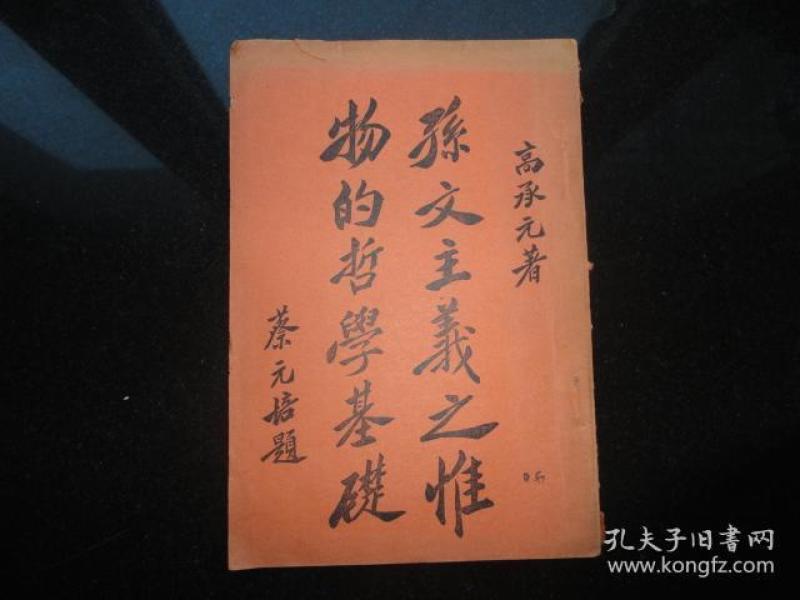 高承元著
孫文主義之惟
物的哲學基礎
蔡元培題
孔夫子旧书网
www.kongfz.com